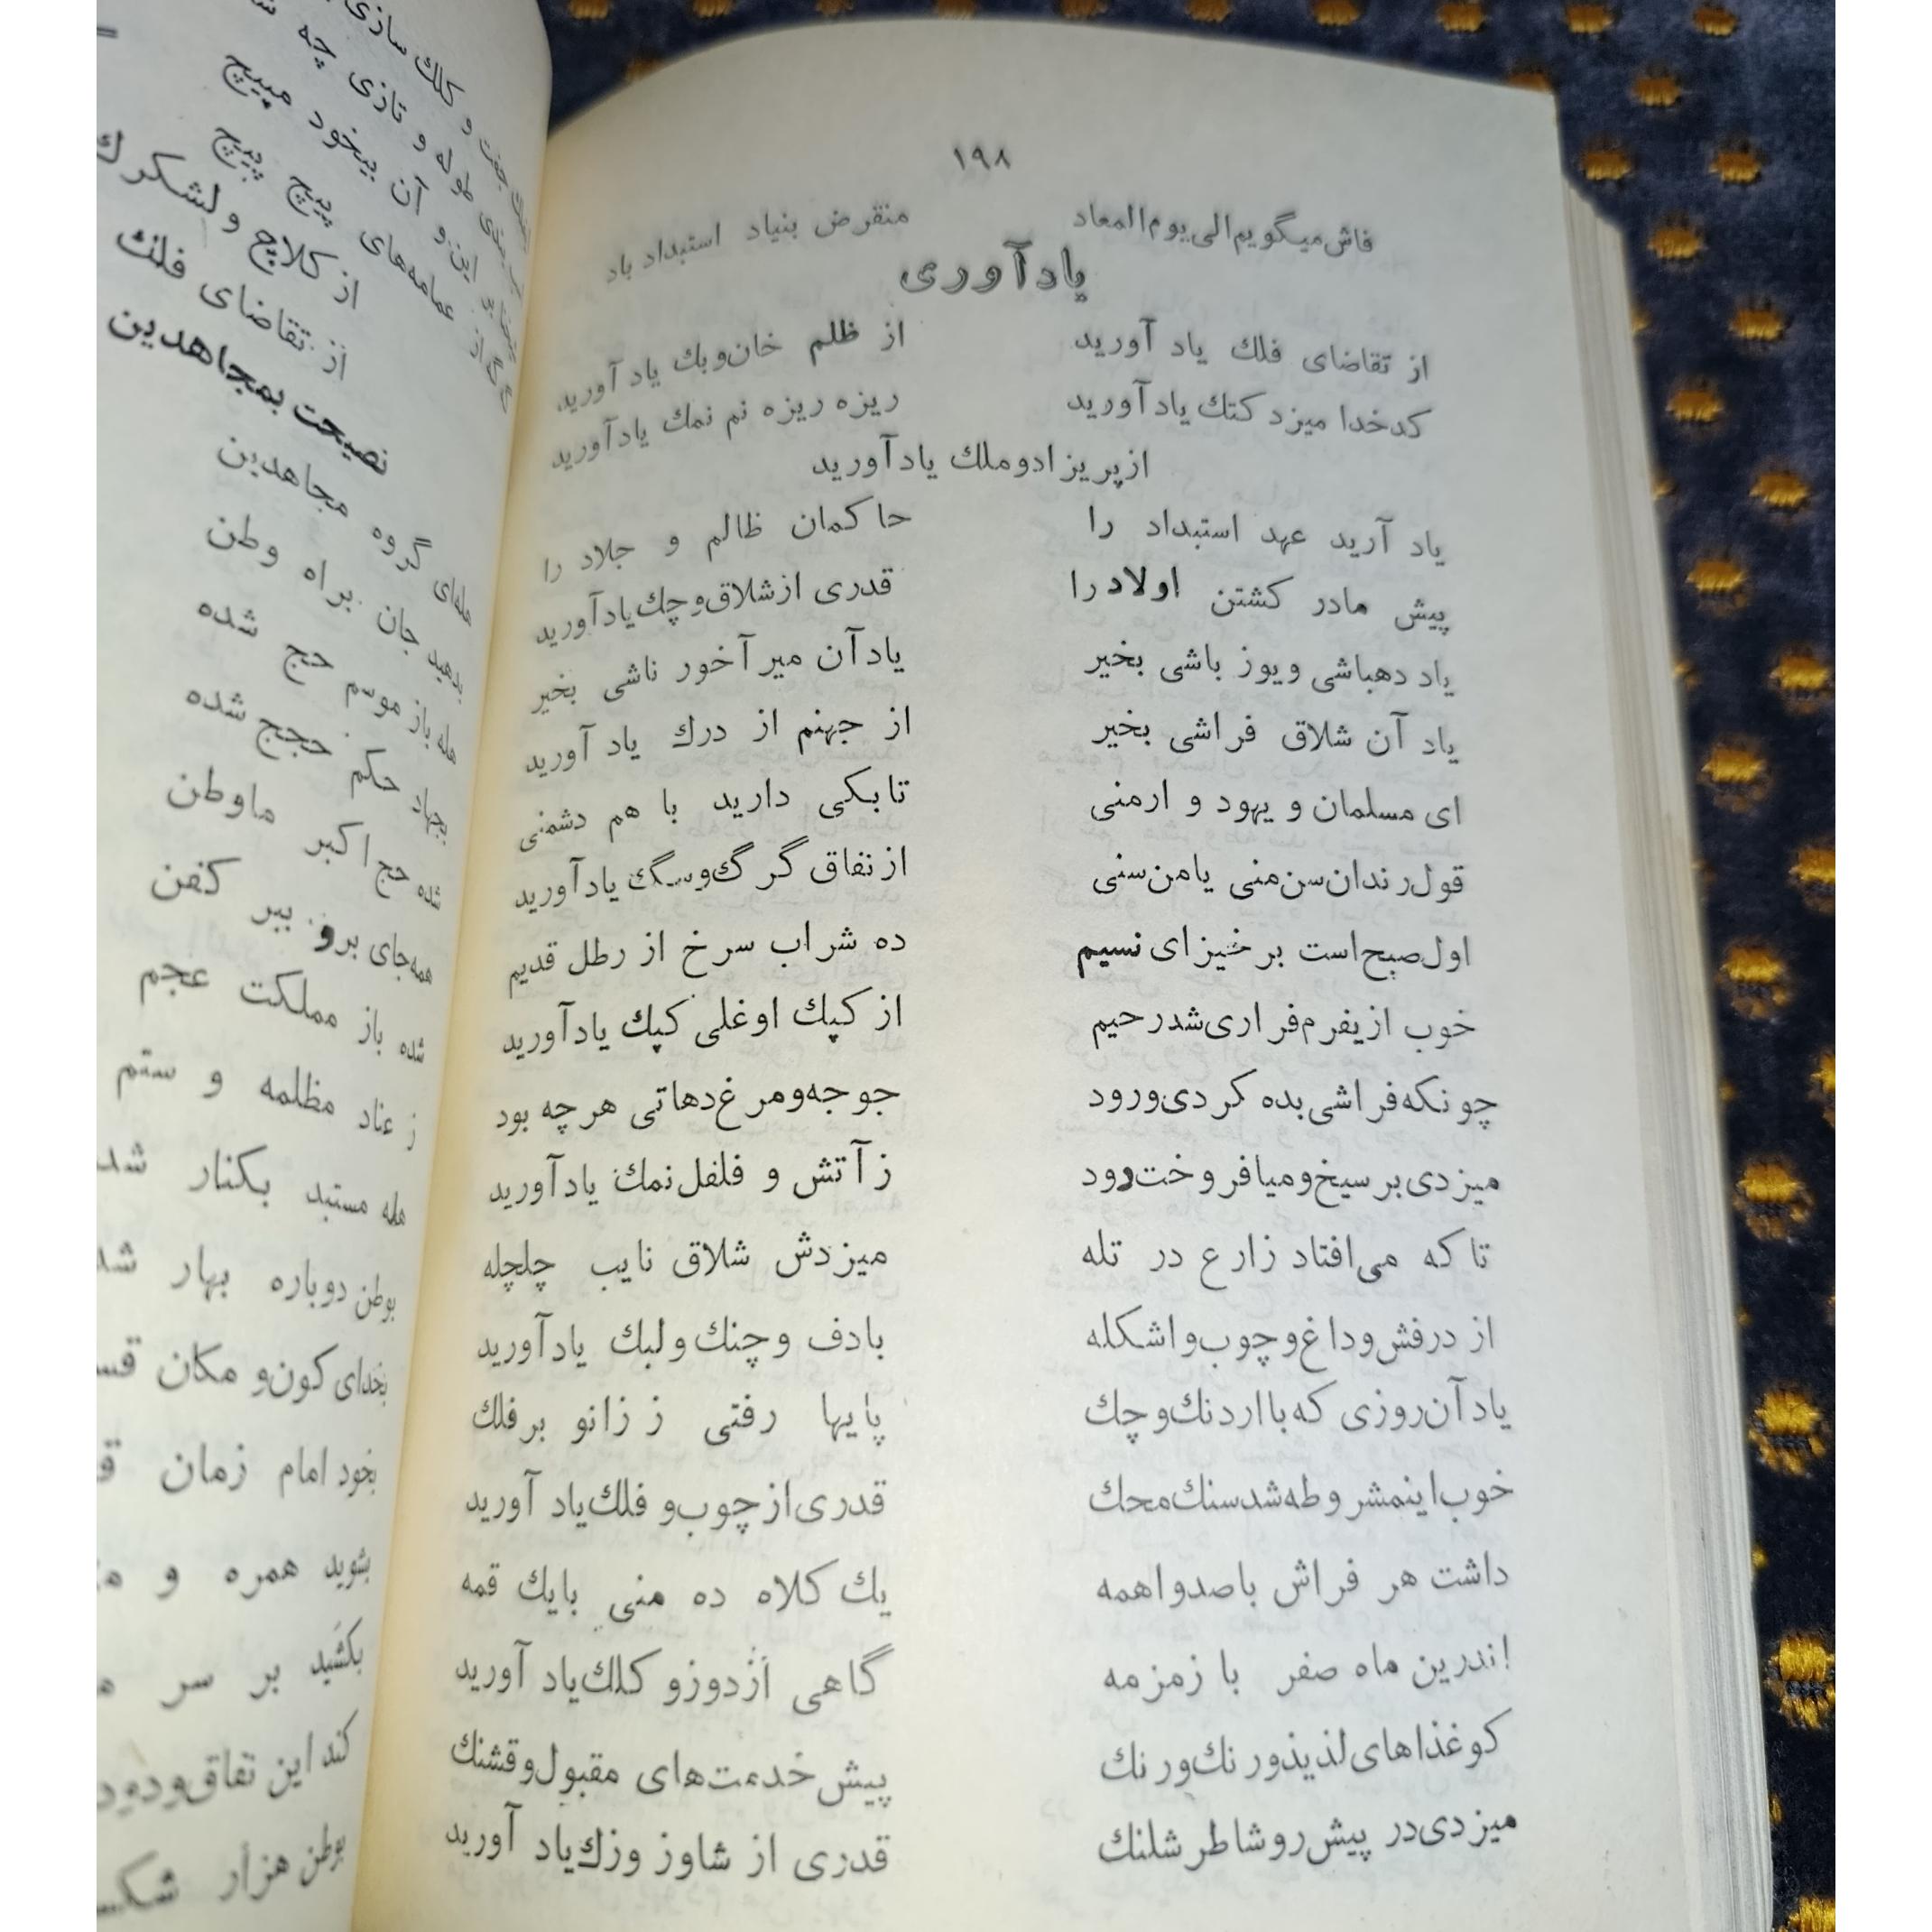 ۱۹۸
فاش میگویم الی یوم المعاد منقرض بنیاد استبداد باد
یادآوری
از تقاضای فلك یاد آورید از ظلم خان و بك یاد آورید
کدخدا میزد کتك یاد آورید ریزه ریزه نم نمك یاد آورید
از پریزاد و ملك یاد آورید
یاد آرید عهد استبداد را حاکمان ظالم و جلاد را
پیش مادر کشتن اولاد را قدری از شلاق و چك یاد آورید
یاد دهباشی و یوز باشی بخیر یاد آن میرآخور ناشی بخیر
یاد آن شلاق فراشی بخیر از جهنم از درك یاد آورید
ای مسلمان و یهود و ارمنی تابکی دارید با هم دشمنی
قول رندان سن منی یا من سنی از نفاق گرگ و سگ یاد آورید
اول صبح است برخیز ای نسیم ده شراب سرخ از رطل قدیم
خوب از یفرم فراری شد رحیم از کپك اوغلی کپك یاد آورید
چونکه فراشی بده کردی ورود جوجه و مرغ دهاتی هر چه بود
میزدی بر سیخ و میافروخت دود ز آتش و فلفل نمك یاد آورید
تا که می‌افتاد زارع در تله میزدش شلاق نایب چلچله
از درفش و داغ و چوب و اشکله با دف و چنك و لبك یاد آورید
یاد آن روزی که با اردنك و چك پایها رفتی ز زانو بر فلك
خوب اینمشروطه شد سنك محك قدری از چوب و فلك یاد آورید
داشت هر فراش با صد واهمه یك کلاه ده منی با یك قمه
اندرین ماه صفر با زمزمه گاهی از دوز و کلك یاد آورید
کو غذاهای لذیذ و رنك و رنك پیش خدمت‌های مقبول و قشنك
میزدی در پیش رو شاطر شلنك قدری از شاوز وزك یاد آورید
از کلاچ و لشکرك
از تقاضای فلك
نصیحت بمجاهدین
هله‌ای گروه مجاهدین
بدهید جان براه وطن
هله باز موسم حج شده
بجهاد حکم حجج شده
شده حج اکبر ما وطن
همه جای برو ببر کفن
شده باز مملکت عجم
ز عناد مظلمه و ستم
هله مستبد بکنار
بوطن دوباره بهار
بخدای کون و مکان
بخود امام زمان
بشوید همره و
بکشید بر سر
کند این نفاق
بوطن هزار